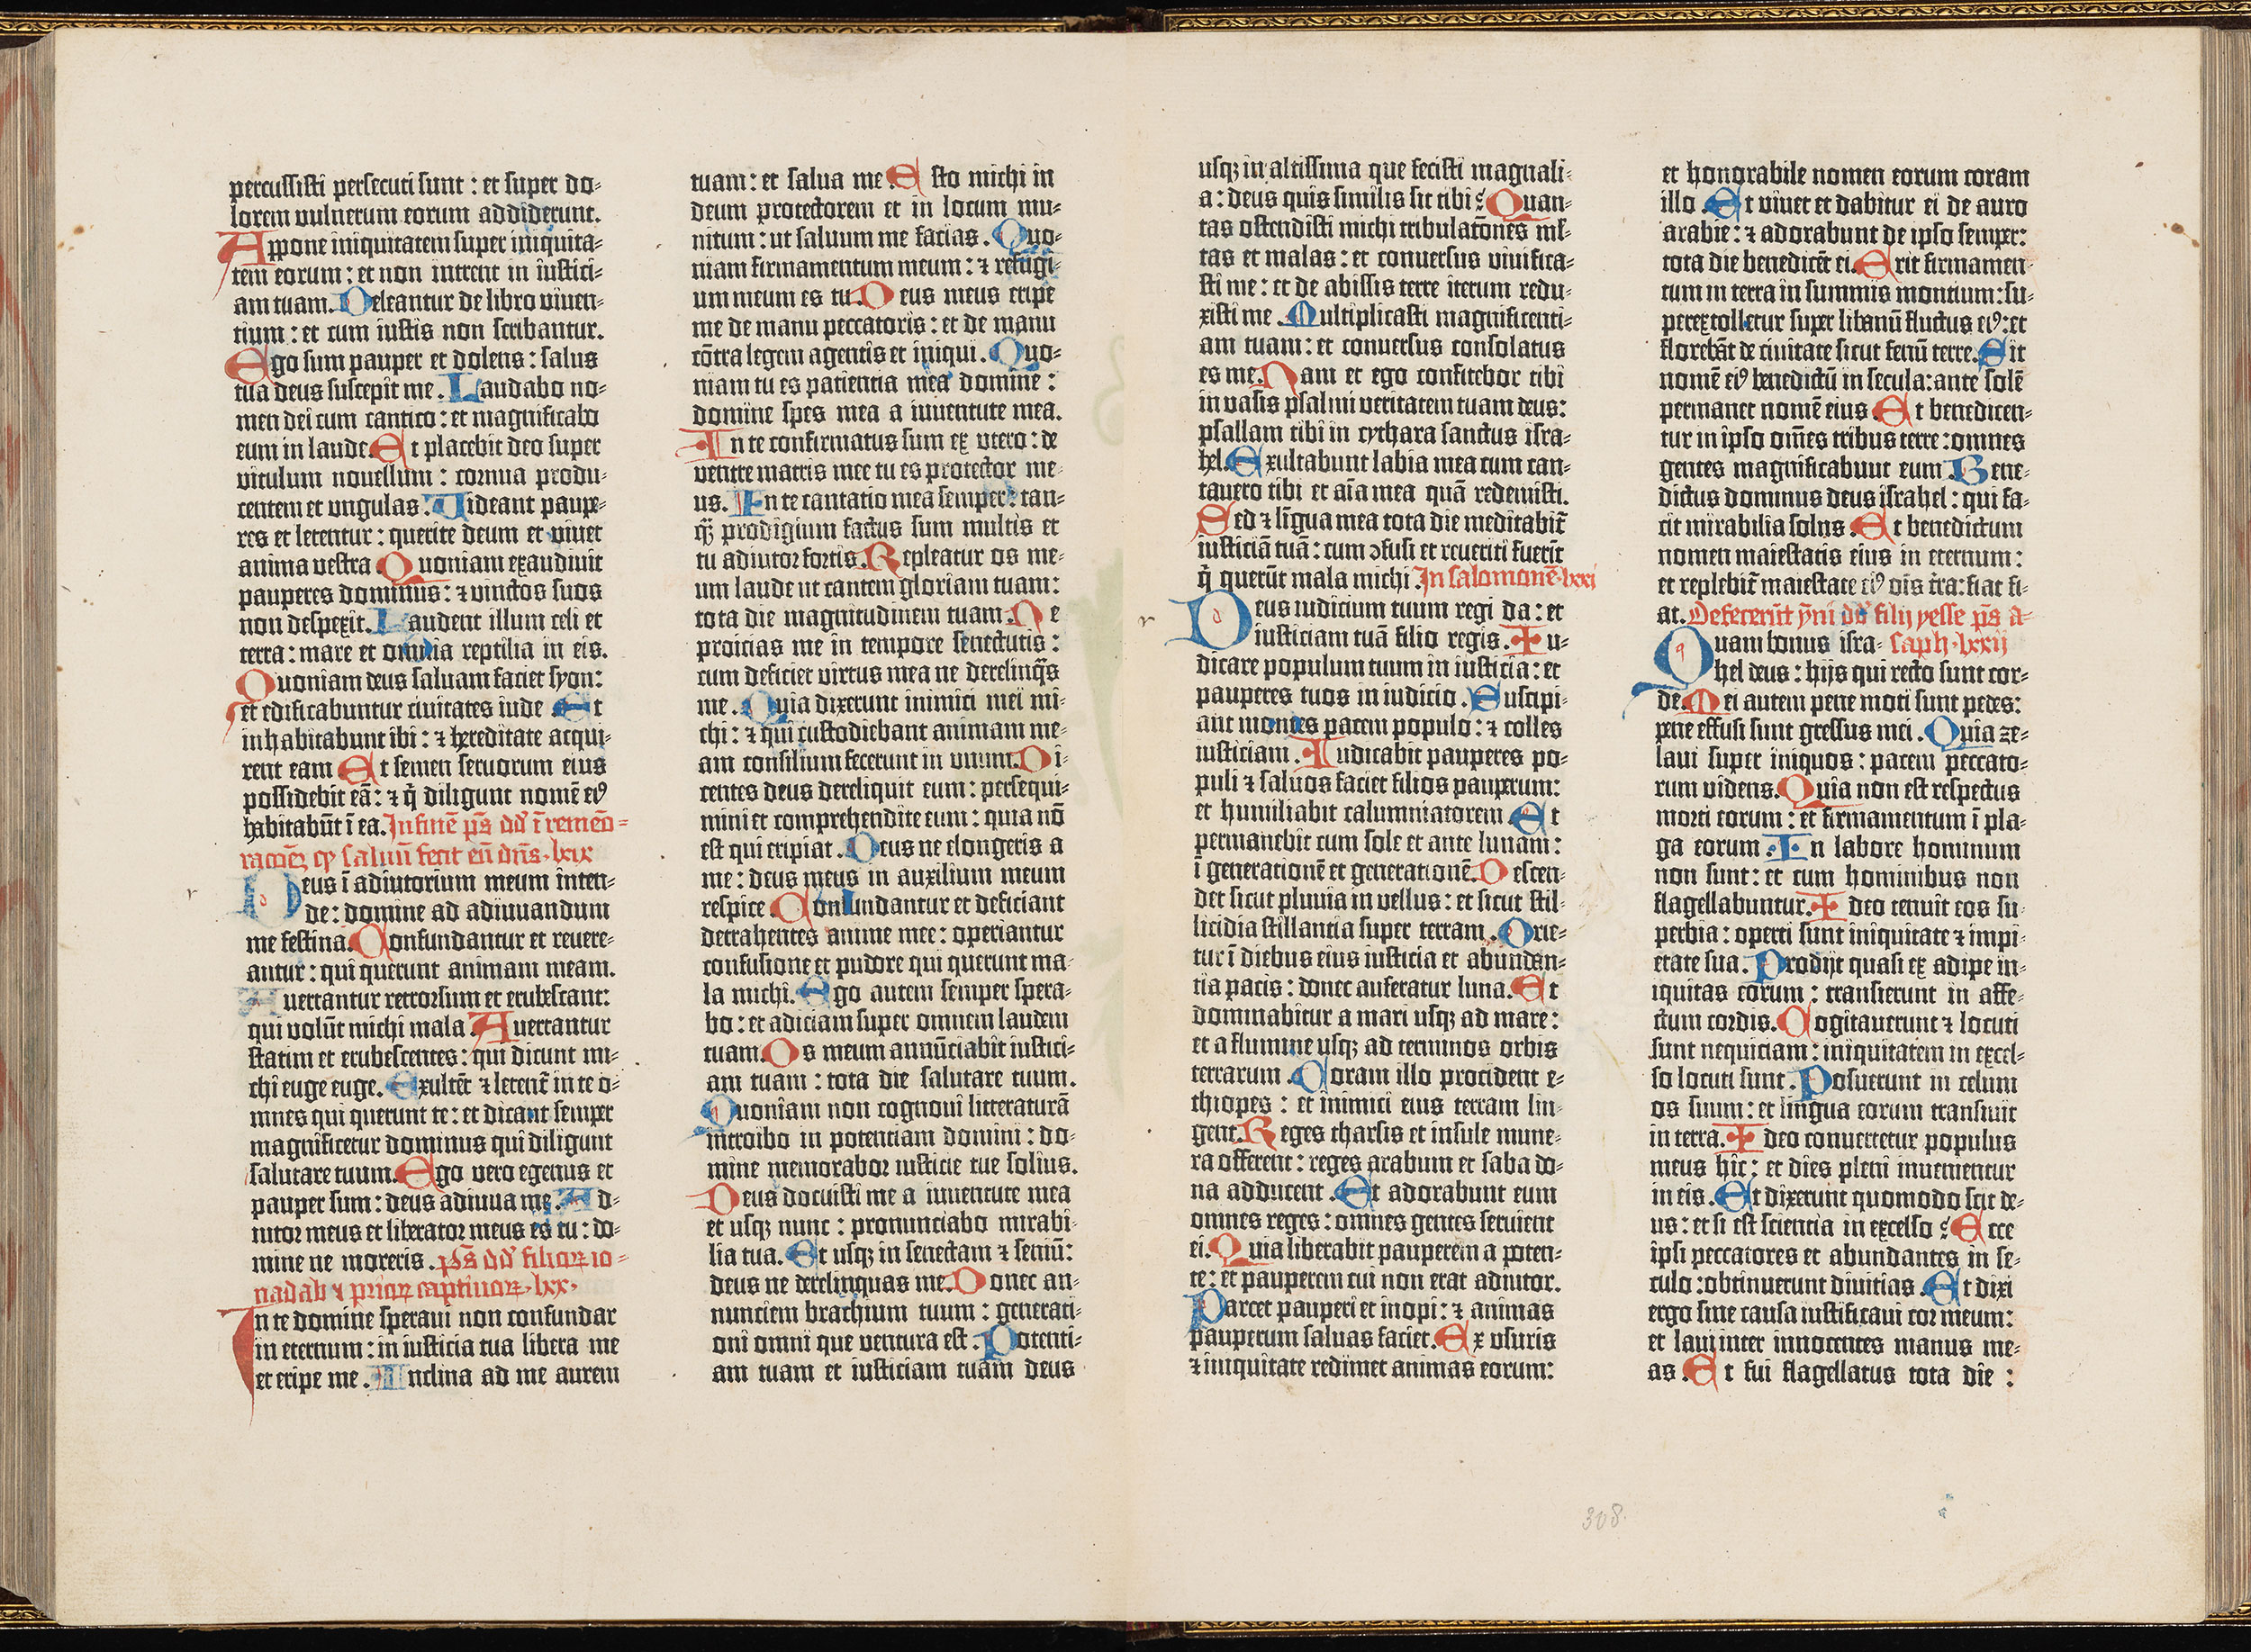 percussisti persecuti sunt : et super do-
lorem vulnerum eorum addiderunt.
Appone iniquitatem super iniquita-
tem eorum : et non intrent in iustici-
am tuam. Deleantur de libro viuen-
tium : et cum iustis non scribantur.
Ego sum pauper et dolens : salus
tua deus suscepit me. Laudabo no-
men dei cum cantico : et magnificabo
eum in laude. Et placebit deo super
vitulum nouellum : cornua produ-
centem et ungulas. Videant paupe-
res et letentur : querite deum et viuet
anima vestra. Quoniam exaudiuit
pauperes dominus : ⁊ vinctos suos
non despexit. Laudent illum celi et
terra : mare et omnia reptilia in eis.
Quoniam deus saluam faciet syon :
et edificabuntur ciuitates iude. Et
inhabitabunt ibi : ⁊ hereditate acqui-
rent eam. Et semen seruorum eius
possidebit eā : ⁊ q̄ diligunt nomē eiꝰ
habitabūt ī ea. In finē ps̄ dd̄ ī remēo-
racōeꝫ ꝙ saluū fecit eū dn̄s. lxix
Deus ī adiutorium meum inten-
de : domine ad adiuuandum
me festina. Confundantur et reuere-
antur : qui querunt animam meam.
Auertantur retrorsum et erubescant :
qui volūt michi mala. Auertantur
statim et erubescentes : qui dicunt mi-
chi euge euge. Exultēt ⁊ letent̄ in te o-
mnes qui querunt te : et dicant semper
magnificetur dominus qui diligunt
salutare tuum. Ego vero egenus et
pauper sum : deus adiuua me. Ad-
iutor meus et liberator meus es tu : do-
mine ne moreris. ps̄ dd̄ filioꝝ io-
nadab ⁊ prioꝝ captiuoꝝ. lxx.
In te domine speraui non confundar
in eternum : in iusticia tua libera me
et eripe me. Inclina ad me aurem
tuam : et salua me. Esto michi in
deum protectorem et in locum mu-
nitum : ut saluum me facias. Quo-
niam firmamentum meum : ⁊ refugi-
um meum es tu. Deus meus eripe
me de manu peccatoris : et de manu
cōtra legem agentis et iniqui. Quo-
niam tu es patientia mea domine :
domine spes mea a iuuentute mea.
In te confirmatus sum ex utero : de
ventre matris mee tu es protector me-
us. In te cantatio mea semper : tan-
qꝫ prodigium factus sum multis et
tu adiutor fortis. Repleatur os me-
um laude ut cantem gloriam tuam :
tota die magnitudinem tuam. Ne
proicias me in tempore senectutis :
cum deficiet virtus mea ne derelinqs̄
me. Quia dixerunt inimici mei mi-
chi : ⁊ qui custodiebant animam me-
am consilium fecerunt in unum. Di-
centes deus dereliquit eum : persequi-
mini et comprehendite eum : quia nō
est qui eripiat. Deus ne elongeris a
me : deus meus in auxilium meum
respice. Confundantur et deficiant
detrahentes anime mee : operiantur
confusione et pudore qui querunt ma-
la michi. Ego autem semper spera-
bo : et adiciam super omnem laudem
tuam. Os meum annūciabit iustici-
am tuam : tota die salutare tuum.
Quoniam non cognoui litteraturā
introibo in potentiam domini : do-
mine memorabor iusticie tue solius.
Deus docuisti me a iuuentute mea
et usqꝫ nunc : pronunciabo mirabi-
lia tua. Et usqꝫ in senectam ⁊ seniū :
deus ne derelinquas me. Donec an-
nunciem brachium tuum : generati-
oni omni que ventura est. Potenti-
am tuam et iusticiam tuam deus
usqꝫ in altissima que fecisti magnali-
a : deus quis similis sit tibi? Quan-
tas ostendisti michi tribulatōnes ml̄-
tas et malas : et conuersus viuifica-
sti me : et de abissis terre iterum redu-
xisti me. Multiplicasti magnificenti-
am tuam : et conuersus consolatus
es me. Nam et ego confitebor tibi
in vasis psalmi veritatem tuam deus :
psallam tibi in cythara sanctus isra-
hel. Exultabunt labia mea cum can-
tauero tibi et aīa mea quā redemisti.
Sed ⁊ līgua mea tota die meditabit̄
iusticiā tuā : cum ɔfusi et reueriti fuerīt
q̄ querūt mala michi. In salomonē. lxxi
Deus iudicium tuum regi da : et
iusticiam tuā filio regis. Iu-
dicare populum tuum in iusticia : et
pauperes tuos in iudicio. Suscipi-
ant montes pacem populo : ⁊ colles
iusticiam. Iudicabit pauperes po-
puli ⁊ saluos faciet filios pauperum :
et humiliabit calumniatorem. Et
permanebit cum sole et ante lunam :
ī generationē et generationē. Descen-
det sicut pluuia in vellus : et sicut stil-
licidia stillantia super terram. Orie-
tur ī diebus eius iusticia et abundan-
tia pacis : donec auferatur luna. Et
dominabitur a mari usqꝫ ad mare :
et a flumine usqꝫ ad terminos orbis
terrarum. Coram illo procident e-
thiopes : et inimici eius terram lin-
gent. Reges tharsis et insule mune-
ra offerent : reges arabum et saba do-
na adducent. Et adorabunt eum
omnes reges : omnes gentes seruient
ei. Quia liberabit pauperem a poten-
te : et pauperem cui non erat adiutor.
Parcet pauperi et inopi : ⁊ animas
pauperum saluas faciet. Ex usuris
⁊ iniquitate redimet animas eorum :
et honorabile nomen eorum coram
illo. Et viuet et dabitur ei de auro
arabie : ⁊ adorabunt de ipso semper :
tota die benedicēt ei. Erit firmamen-
tum in terra in summis montium : su-
perextolletur super libanū fructus eiꝰ : et
florebūt de ciuitate sicut fenū terre. Sit
nomē eiꝰ benedictū in secula : ante solē
permanet nomē eius. Et benedicen-
tur in ipso om̄es tribus terre : omnes
gentes magnificabunt eum. Bene-
dictus dominus deus israhel : qui fa-
cit mirabilia solus. Et benedictum
nomen maiestatis eius in eternum :
et replebit̄ maiestate eiꝰ oīs tr̄a : fiat fi-
at. Defecerūt ẏmi dd̄ filij yesse ps̄ a-
Quam bonus isra- saph. lxxij
hel deus : hijs qui recto sunt cor-
de. Mei autem pene moti sunt pedes :
pene effusi sunt gressus mei. Quia ze-
laui super iniquos : pacem peccato-
rum videns. Quia non est respectus
morti eorum : et firmamentum ī pla-
ga eorum. In labore hominum
non sunt : et cum hominibus non
flagellabuntur. Ideo tenuit eos su-
perbia : operti sunt iniquitate ⁊ impi-
etate sua. Prodijt quasi ex adipe in-
iquitas eorum : transierunt in affe-
ctum cordis. Cogitauerunt ⁊ locuti
sunt nequiciam : iniquitatem in excel-
so locuti sunt. Posuerunt in celum
os suum : et lingua eorum transiuit
in terra. Ideo conuertetur populus
meus hic : et dies pleni inuenientur
in eis. Et dixerunt quomodo scit de-
us : et si est sciencia in excelso? Ecce
ipsi peccatores et abundantes in se-
culo : obtinuerunt diuitias. Et dixi
ergo sine causa iustificaui cor meum :
et laui inter innocentes manus me-
as. Et fui flagellatus tota die :
308.